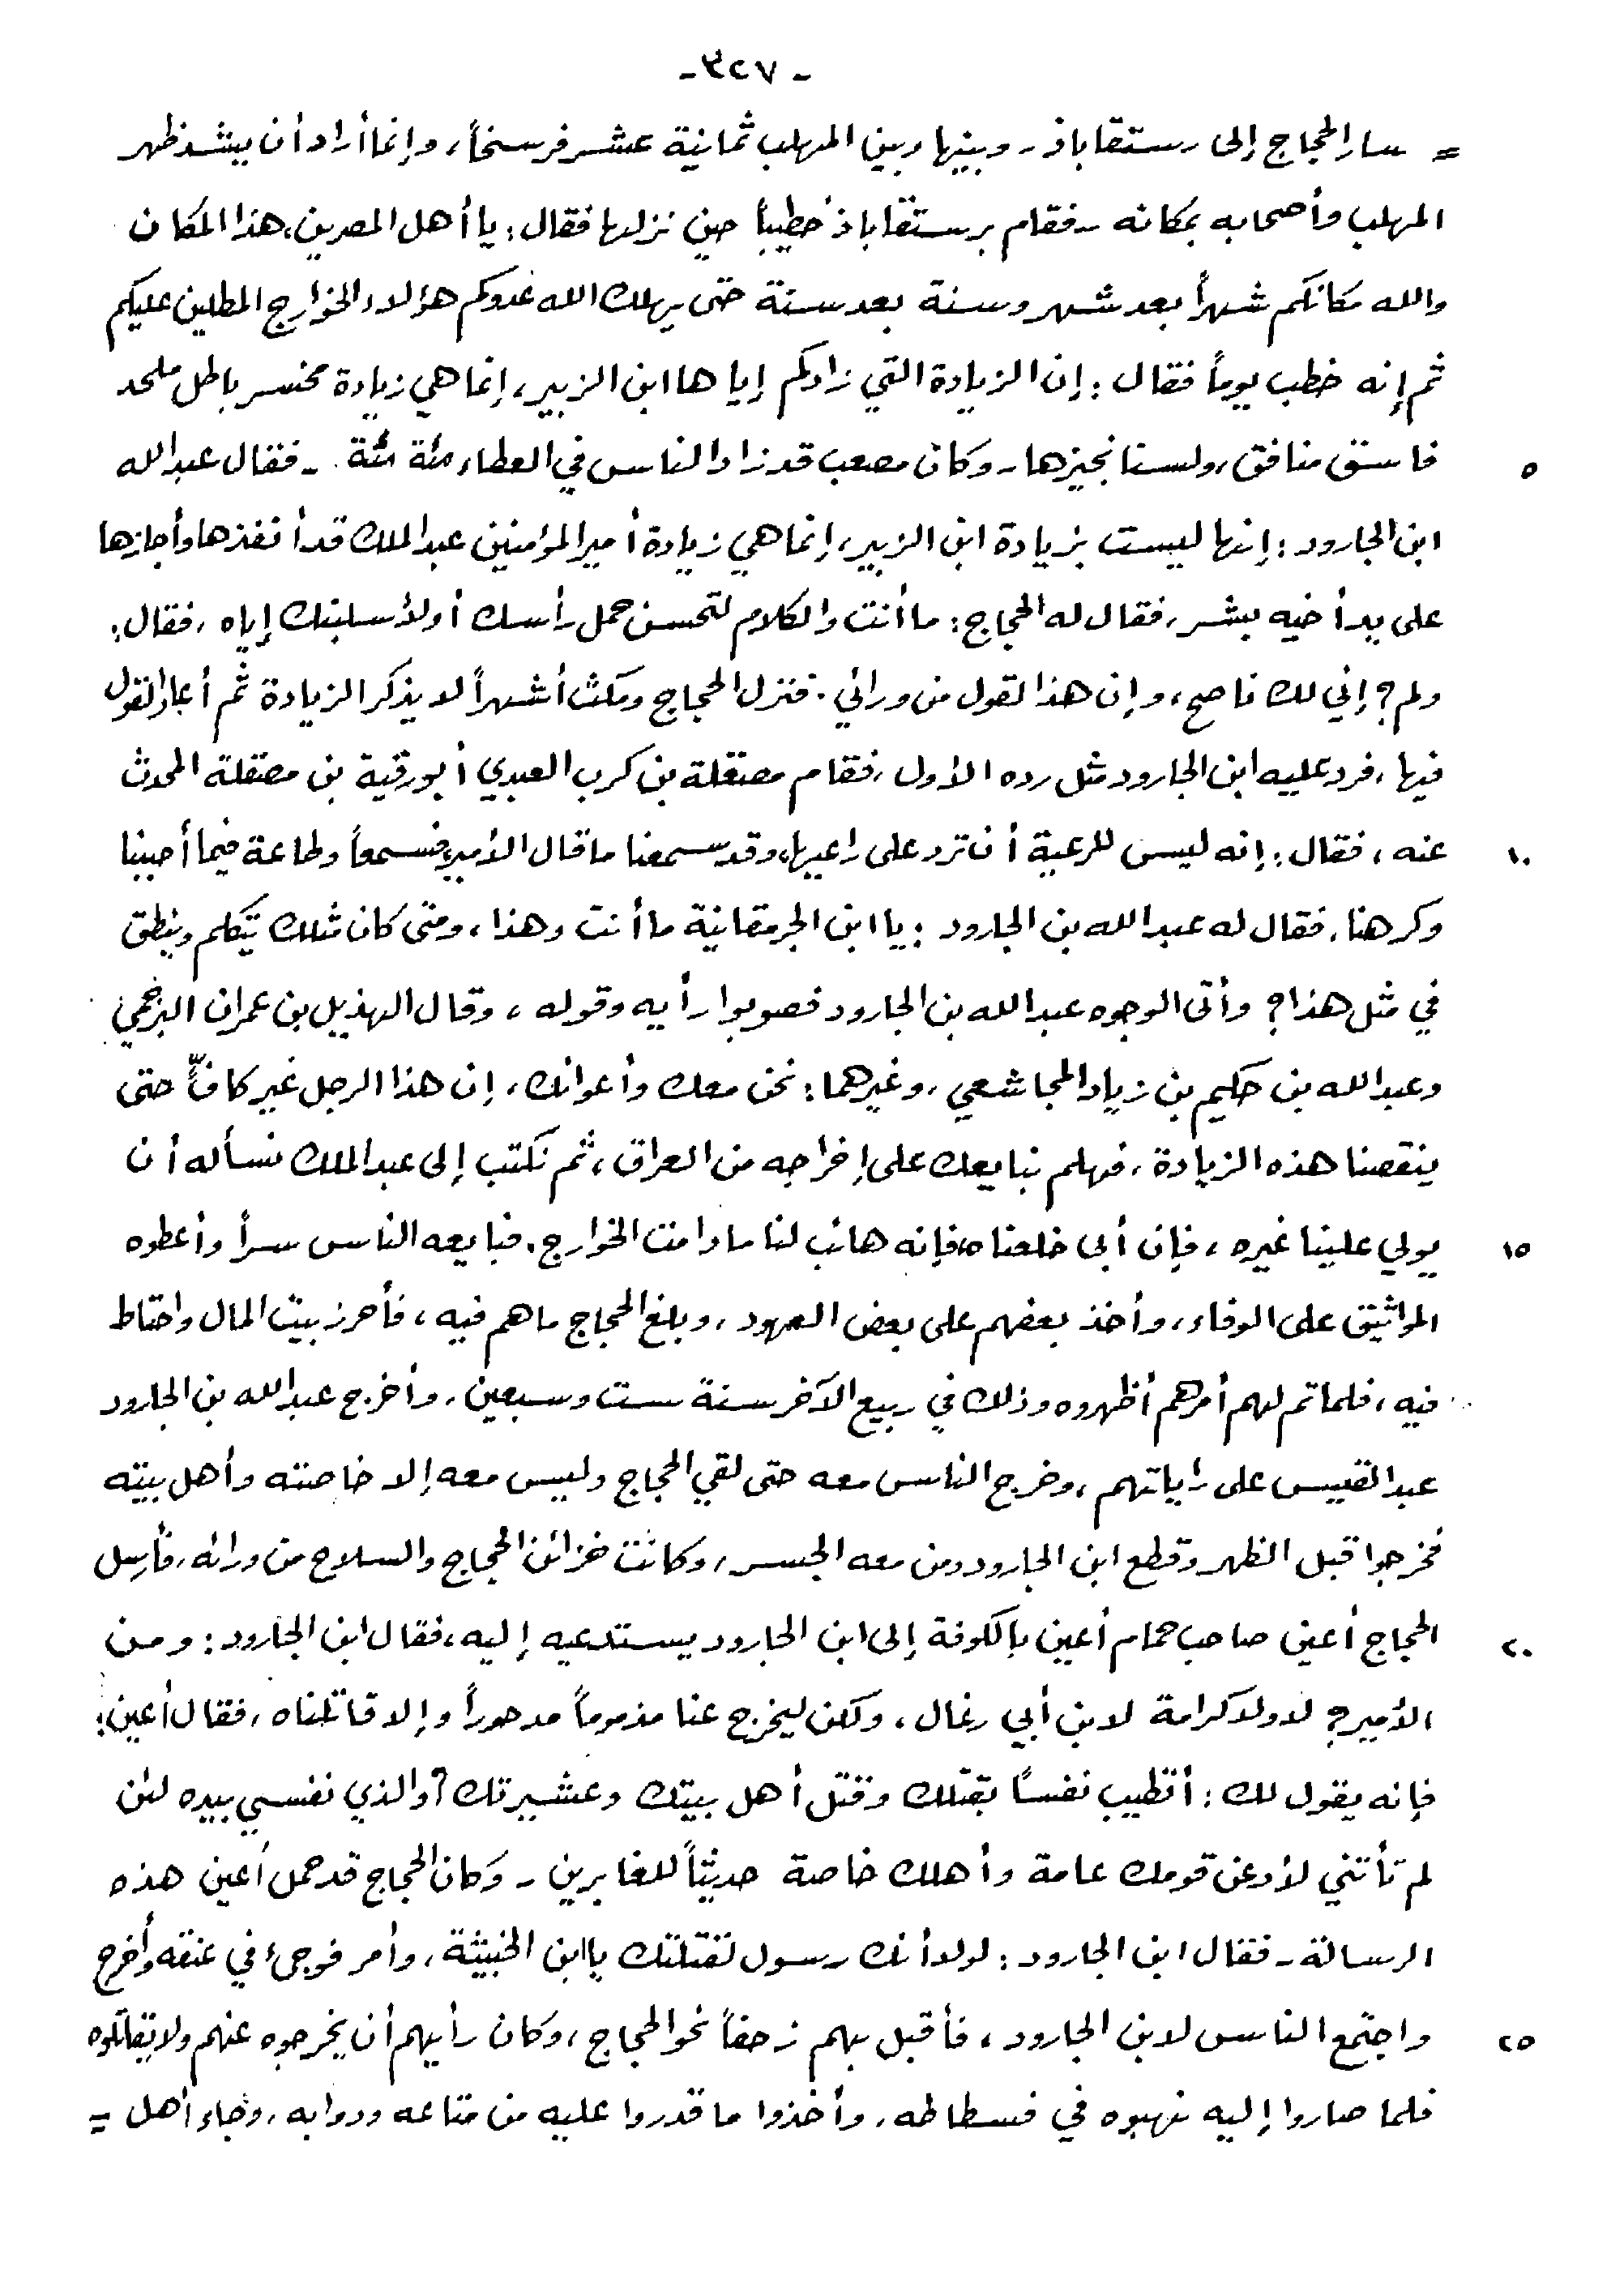 - ٣٢٧ -
= سار الحجاج إلى رستقاباذ - وبينها وبين المهلب ثمانية عشر فرسخاً، وإنما أراد أن يشد ظهر
المهلب وأصحابه بمكانه - فقام برستقاباذ خطيباً حين نزلها فقال: يا أهل المصرين، هذا المكان
والله مكانكم شهراً بعد شهر وسنة بعد سنة حتى يهلك الله عدوكم هؤلاء الخوارج المطلين عليكم
ثم إنه خطب يوماً فقال: إن الزيادة التي زادكم إياها ابن الزبير، إنما هي زيادة مخسر باطل ملحد
فاسق منافق، ولسنا نجيزها - وكان مصعب قد زاد الناس في العطاء مئة مئة - فقال عبد الله ٥
ابن الجارود: إنها ليست بزيادة ابن الزبير، إنما هي زيادة أمير المؤمنين عبد الملك قد أنفذها وأجازها
على يد أخيه بشر، فقال له الحجاج: ما أنت والكلام لتحسن حمل رأسك أو لأسلبنك إياه، فقال:
ولم؟ إني لك ناصح، وإن هذا لقول من ورائي. فنزل الحجاج ومكث أشهراً لا يذكر الزيادة ثم أعاد القول
فيها، فرد عليه ابن الجارود مثل رده الأول، فقام مصقلة بن كرب العبدي أبو رقية بن مصقلة المحدث
عنه، فقال: إنه ليس للرعية أن ترد على راعيها، وقد سمعنا ما قال الأمير، فسمعاً وطاعة فيما أحببنا ١٠
وكرهنا. فقال له عبد الله بن الجارود: يا ابن الجرمقانية ما أنت وهذا، ومتى كان مثلك يتكلم وينطق
في مثل هذا؟ وأتى الوجوه عبد الله بن الجارود فصوبوا رأيه وقوله، وقال الهذيل بن عمران البرجمي
وعبد الله بن حكيم بن زياد المجاشعي، وغيرهما: نحن معك وأعوانك، إن هذا الرجل غير كافٍّ حتى
ينقصنا هذه الزيادة، فهلم نبايعك على إخراجه من العراق، ثم نكتب إلى عبد الملك نسأله أن
يولي علينا غيره، فإن أبى خلعناه، فإنه هائب لنا ما دامت الخوارج. فبايعه الناس سراً وأعطوه ١٥
المواثيق على الوفاء، وأخذ بعضهم على بعض العهود، وبلغ الحجاج ما هم فيه، فأحرز بيت المال واحتاط
فيه، فلما تم لهم أمرهم أظهروه وذلك في ربيع الآخر سنة ست وسبعين، وأخرج عبد الله بن الجارود
عبد القيس على راياتهم، وخرج الناس معه حتى لقي الحجاج وليس معه إلا خاصته وأهل بيته
فخرجوا قبل الظهر وقطع ابن الجارود ومن معه الجسر، وكانت خزائن الحجاج والسلاح من ورائه، فأرسل
الحجاج أعين صاحب حمام أعين بالكوفة إلى ابن الجارود يستدعيه إليه، فقال ابن الجارود: ومن ٢٠
الأمير؟ لا ولا كرامة لابن أبي رغال، ولكن ليخرج عنا مذموماً مدحوراً وإلا قاتلناه، فقال أعين:
فإنه يقول لك: أتطيب نفساً بقتلك وقتل أهل بيتك وعشيرتك؟ والذي نفسي بيده لئن
لم تأتني لأدعن قومك عامة وأهلك خاصة حديثاً للغابرين - وكان الحجاج قد حمل أعين هذه
الرسالة - فقال ابن الجارود: لولا أنك رسول لقتلتك يا ابن الخبيثة، وأمر فوجئ في عنقه وأخرج
واجتمع الناس لابن الجارود، فأقبل بهم زحفاً نحو الحجاج، وكان رأيهم أن يخرجوه عنهم ولا يقاتلوه ٢٥
فلما صاروا إليه نهبوه في فسطاطه، وأخذوا ما قدروا عليه من متاعه ودوابه، وجاء أهل =